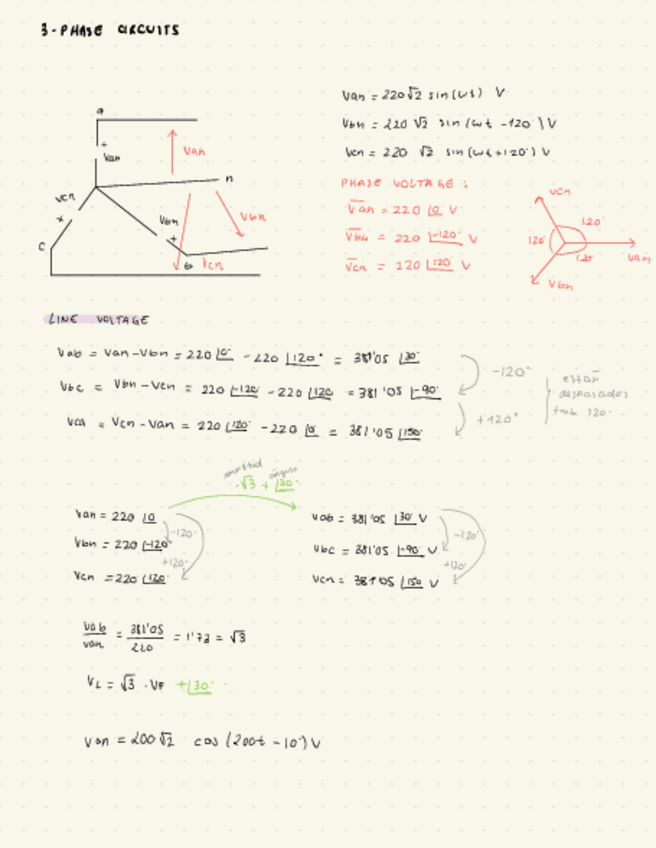 3-PHASE CIRCUITS
a
+
Van
Van
n
Vcn
Vbn
Vbn
+
C
b
Vcn
Van = 220√2 sin(ωt) V
Vbn = 220 √2 sin(ωt -120°) V
Vcn = 220 √2 sin(ωt+120°) V
PHASE VOLTAGE:
Van = 220 |0° V
Vbn = 220 |-120° V
Vcn = 220 |120 V
Vcn
120°
120°
120°
Van
Vbn
LINE VOLTAGE
Vab = Van-Vbn = 220 |0° - 220 |120° = 381'05 |30°
Vbc = Vbn-Vcn = 220 |-120 - 220 |120 = 381'05 |-90°
Vca = Vcn-Van = 220 |120° - 220 |0° = 381'05 |150°
-120°
+120°
están
desfasados
120°
ángulo
√3 + |30°
Van = 220 |0
Vbn = 220 |-120°
Vcn = 220 |120°
-120°
+120°
Vab = 381'05 |30° V
Vbc = 381'05 |-90° V
Vcn = 381'05 |150 V
-120°
+120°
Vab/Van = 381'05/220 = 1'73 = √3
VL = √3 · VF +|30°
Van = 200√2 cos(200t -10°) V